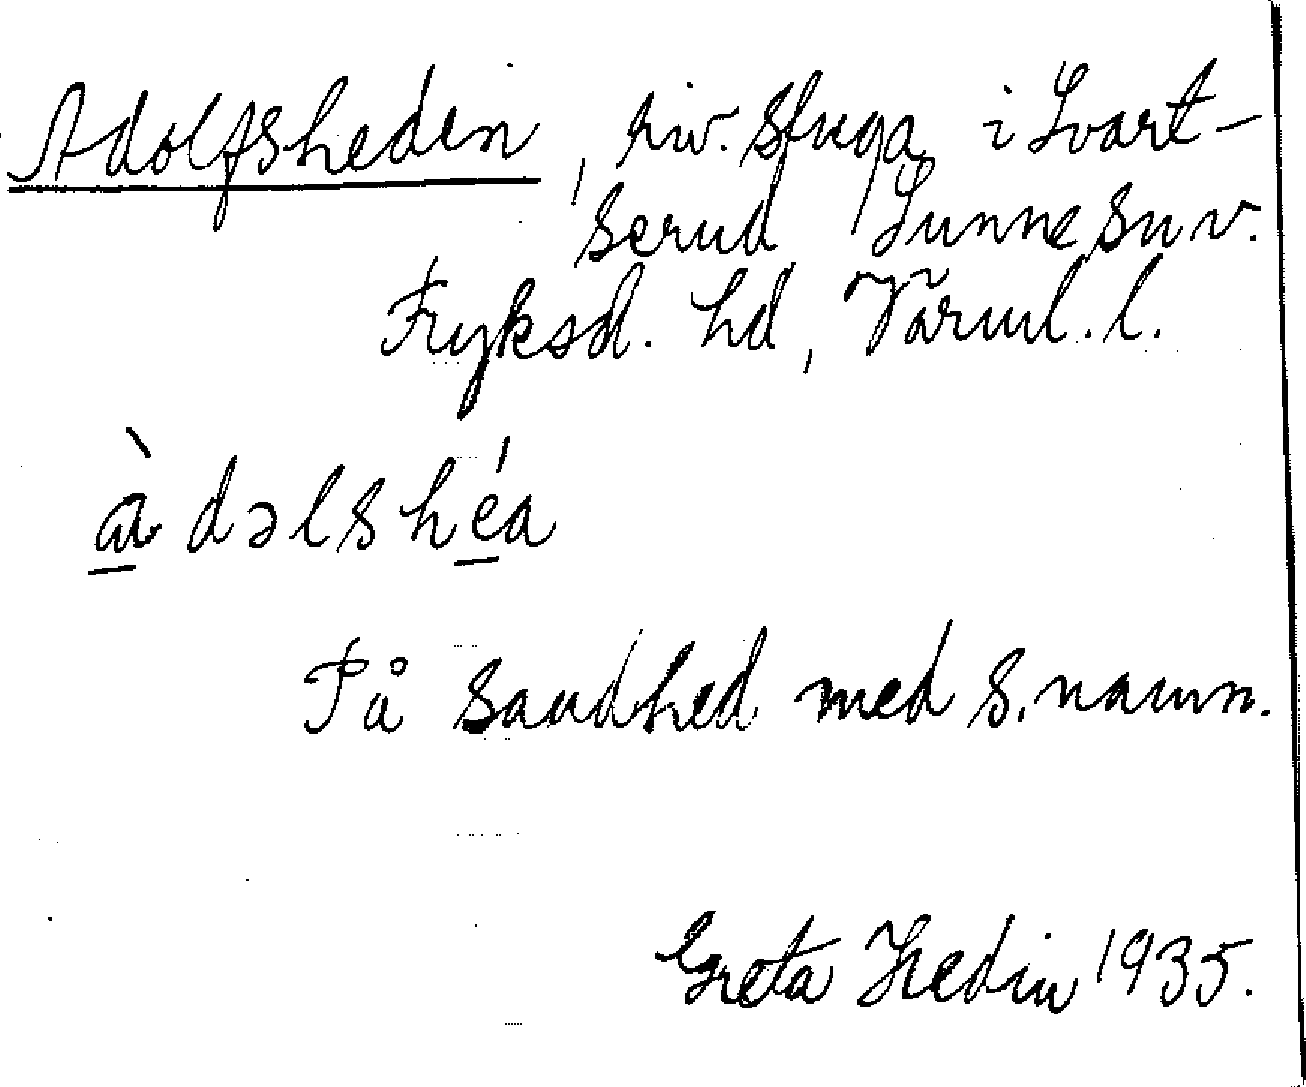 Adolfsheden, riv. stuga i Svart-
serud, Sunne sn v.
Fryksd. hd, Värml. l.
à̱dəlshé̱a
På sandhed med s. namn.
Greta Hedin 1935.